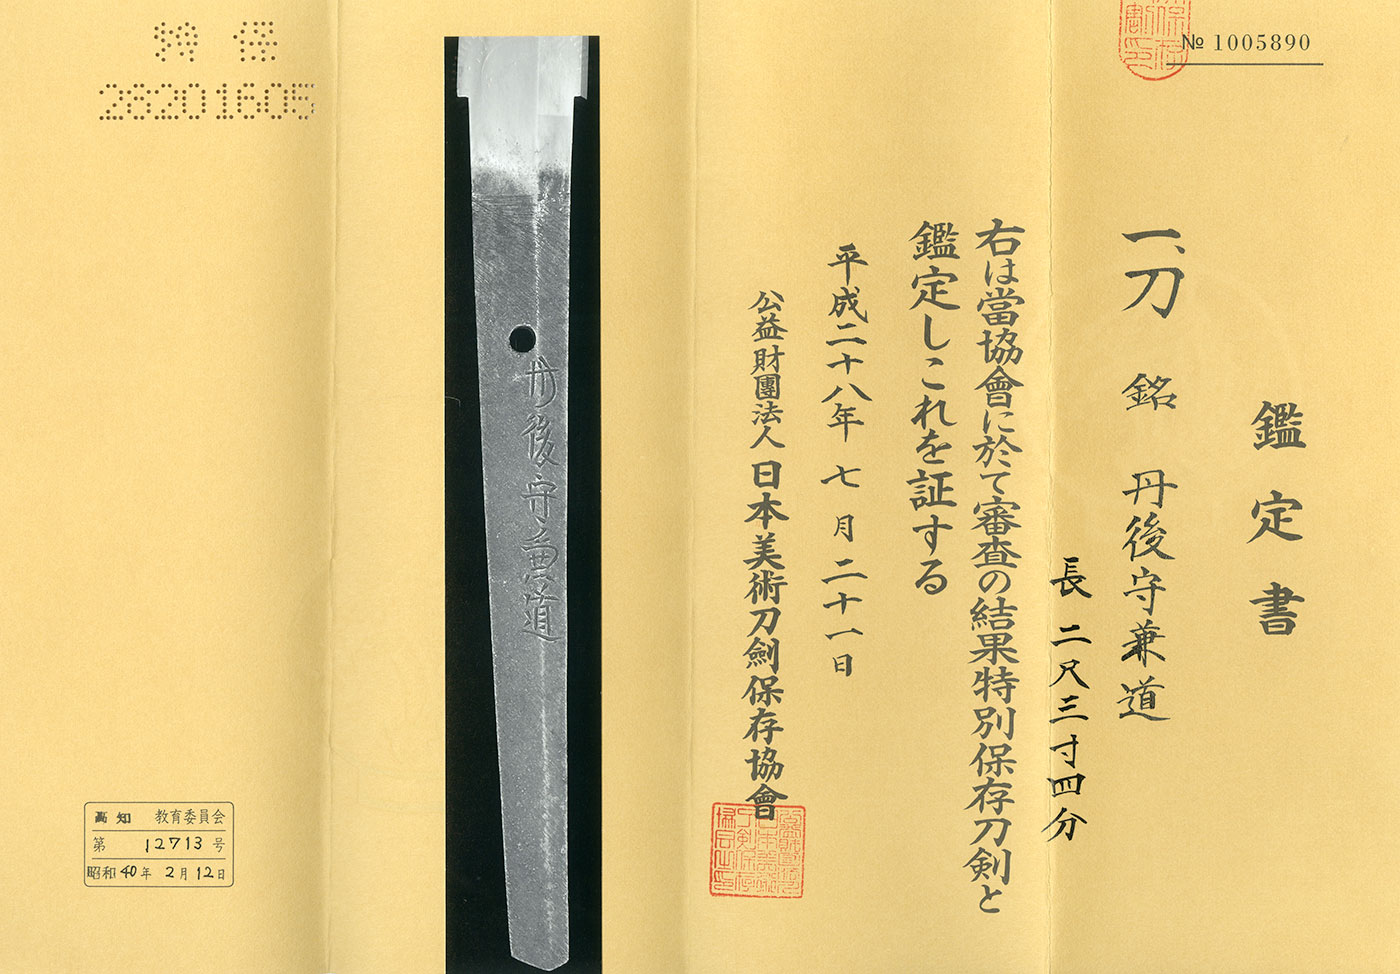 № 1005890
鑑定書
一、刀 銘 丹後守兼道
長 二尺三寸四分
右は當協會に於て審査の結果特別保存刀剣と
鑑定しこれを証する
平成二十八年 七月二十一日
公益財團法人 日本美術刀劍保存協會
丹後守兼道
特保
28201605
高知 教育委員会
第 12713 号
昭和40年 2月12日